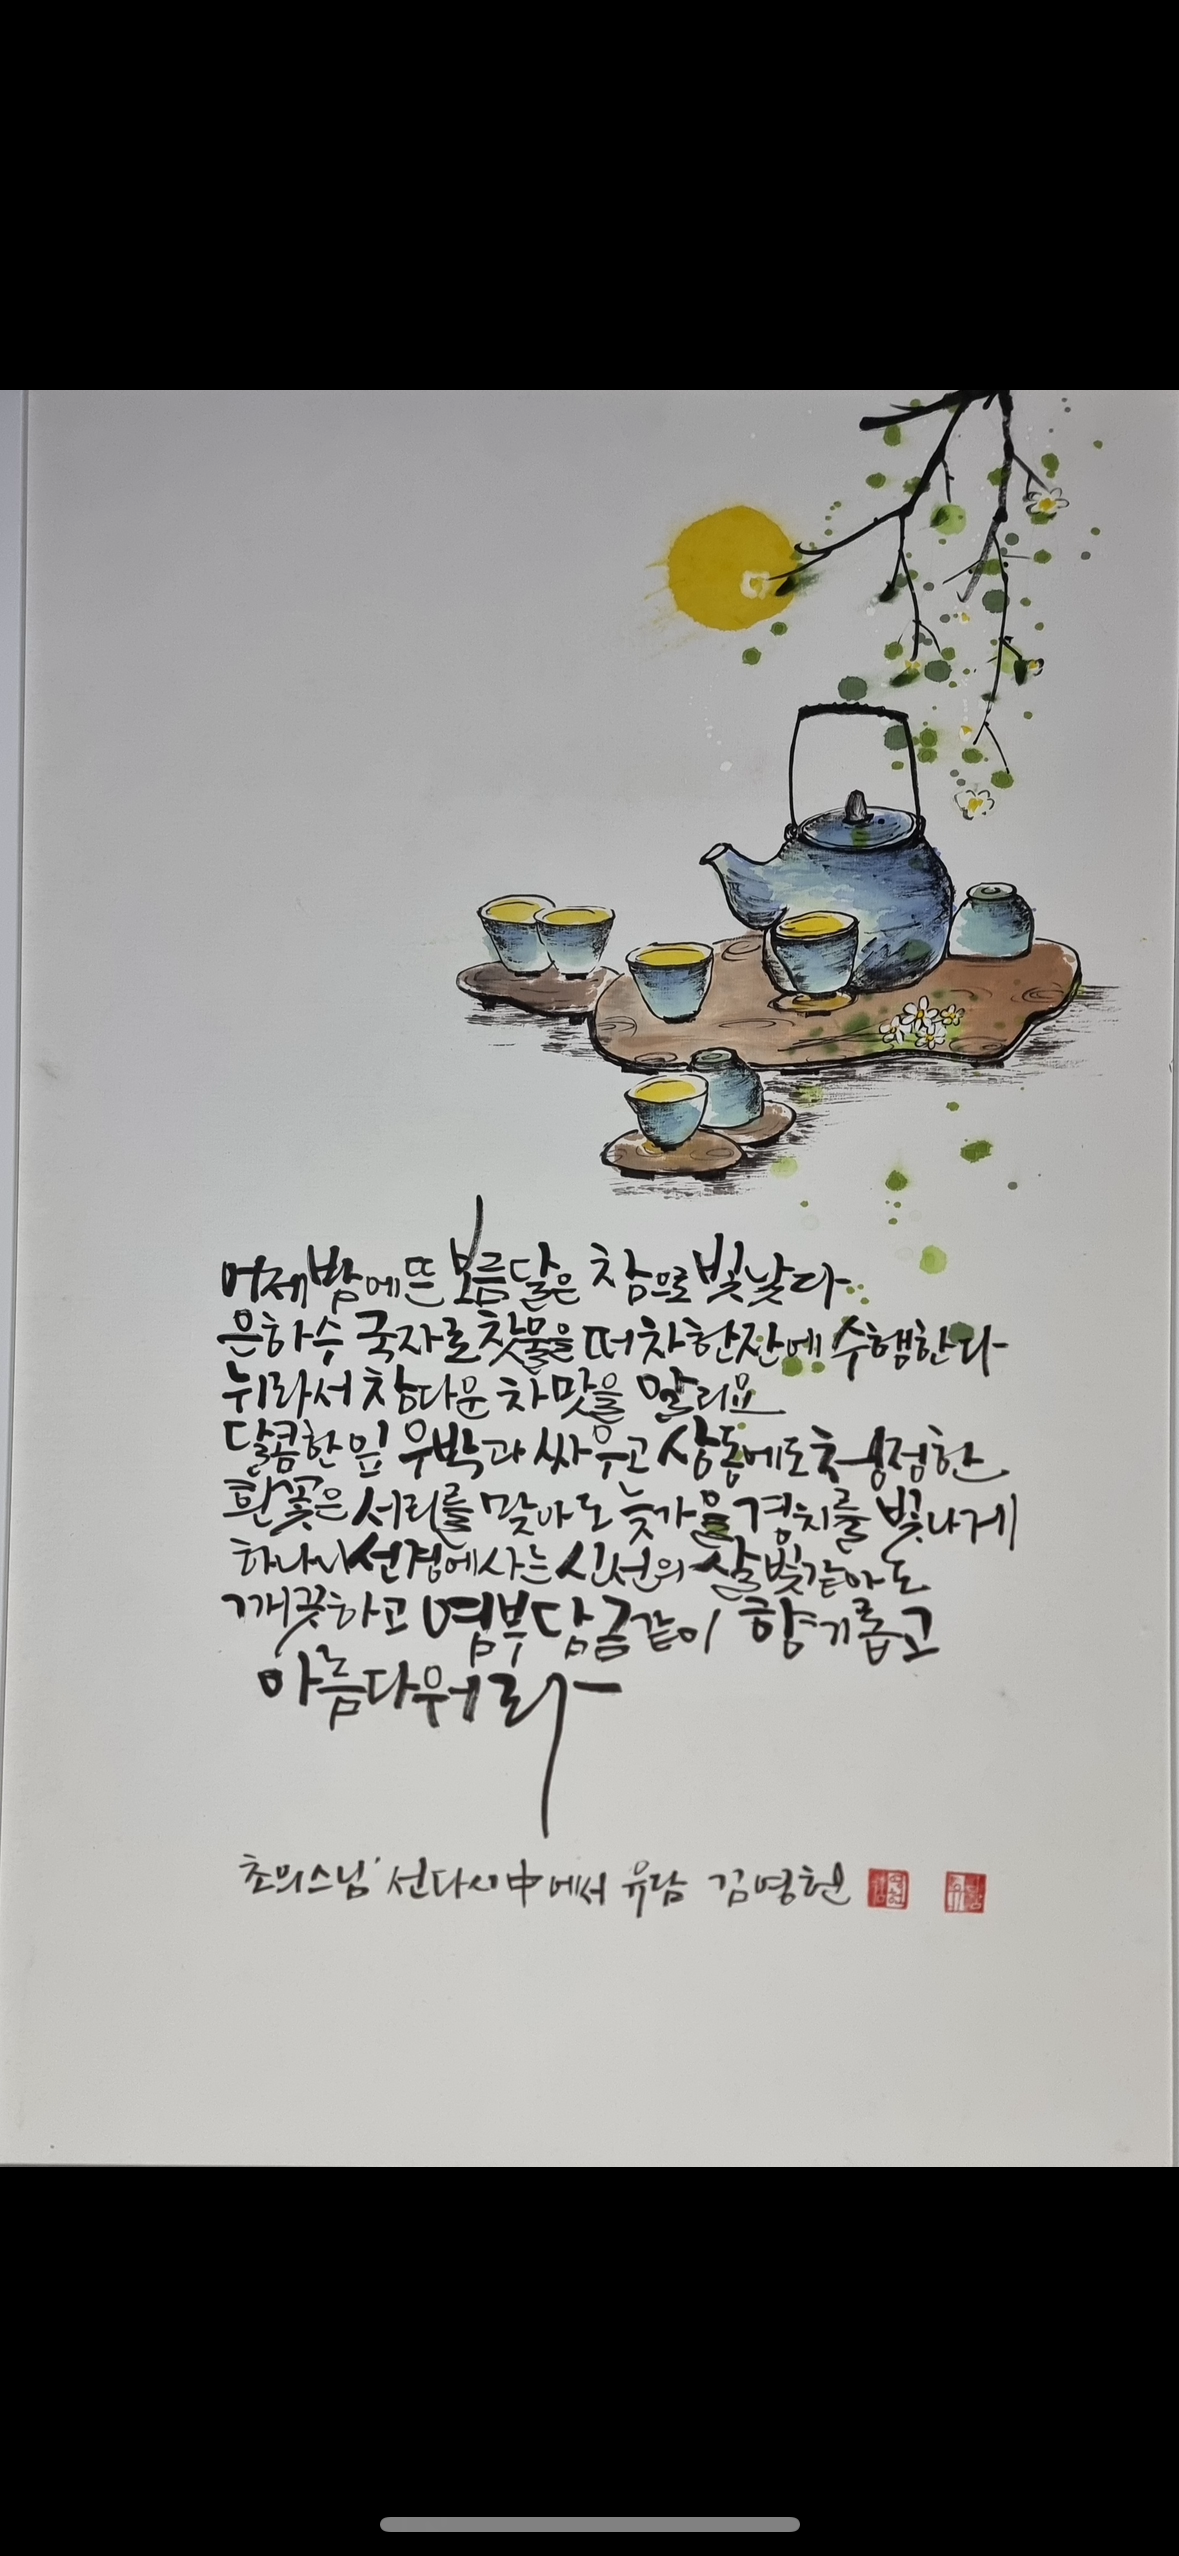 어제밤에 뜬 보름달은 참으로 빛났다
은하수 국자로 찻물을 떠 차한잔에 수행한다
뉘라서 참다운 차맛을 알리요
달콤한 잎 우박과 싸우고 삼동에도 청정한
흰꽃은 서리를 맞아도 늦가을 경치를 빛나게
하나니 선경에 사는 신선의 살빛같아도
깨끗하고 염부담금같이 향기롭고
아름다워라
초의스님' 선다시中에서 유담 김영현